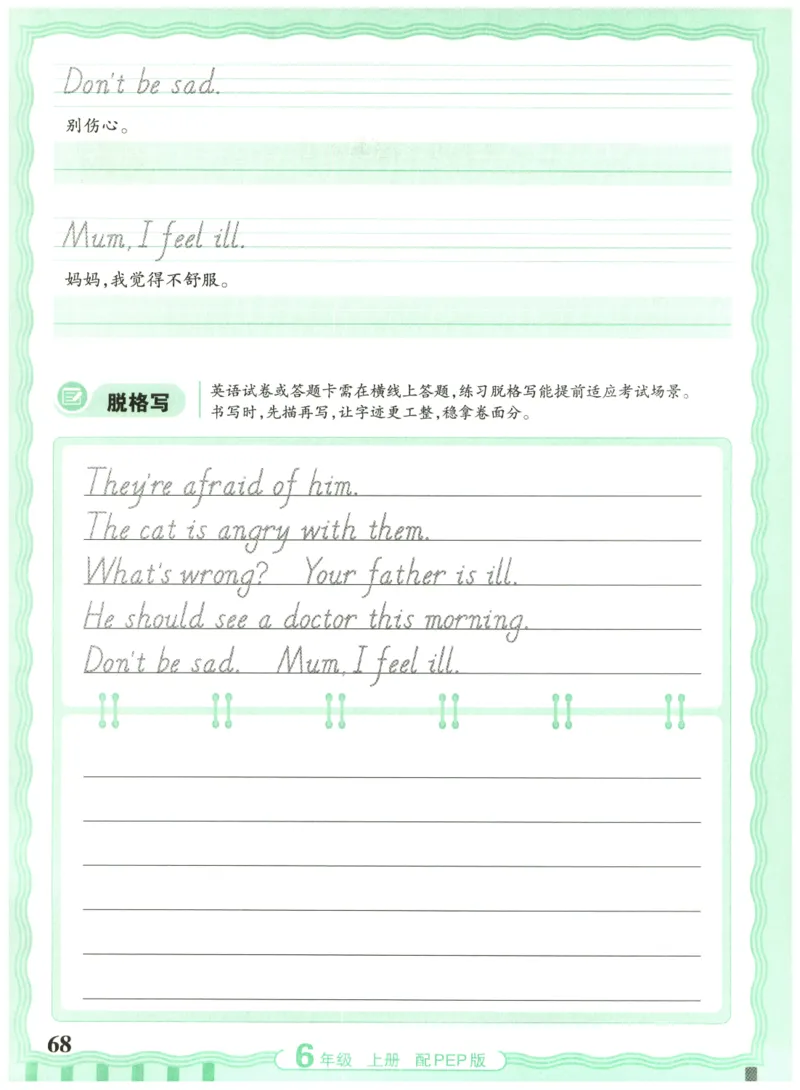 Don't be sad.
别伤心。
Mum, I feel ill.
妈妈,我觉得不舒服。
脱格写
英语试卷或答题卡需在横线上答题,练习脱格写能提前适应考试场景。
书写时,先描再写,让字迹更工整,稳拿卷面分。
They're afraid of him.
The cat is angry with them.
What's wrong? Your father is ill.
He should see a doctor this morning.
Don't be sad. Mum, I feel ill.
68
6年级 上册 配PEP版